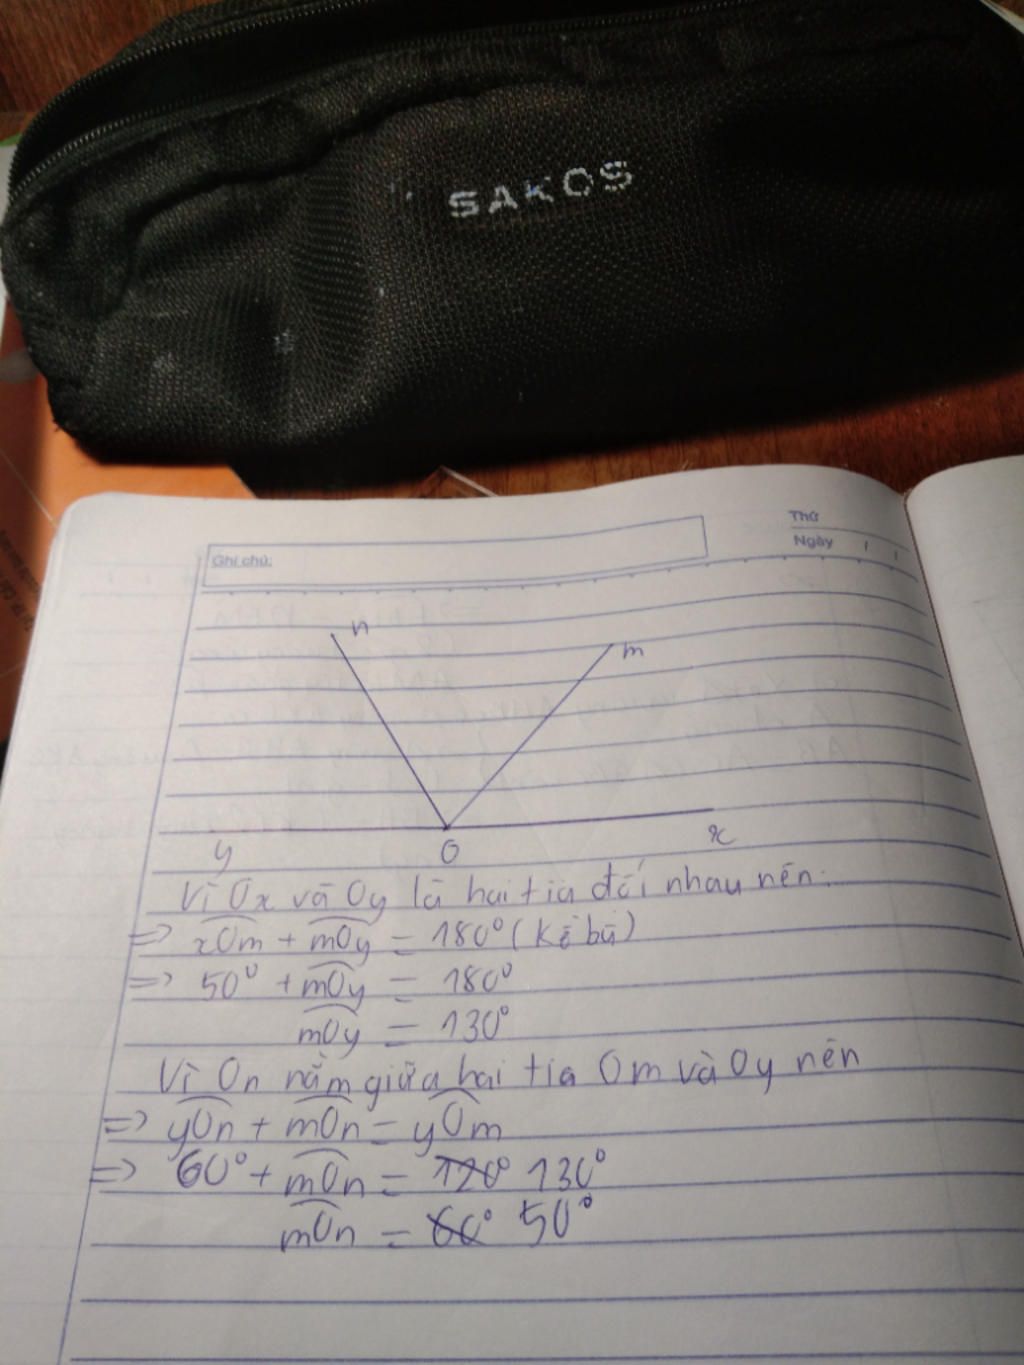 SAKOS
Thứ
Ngày / /
Ghi chú:
n
m
y
O
x
Vì Ox và Oy là hai tia đối nhau nên:
=> xOm + mOy = 180° (kề bù)
=> 50° + mOy = 180°
mOy = 130°
Vì On nằm giữa hai tia Om và Oy nên
=> yOn + mOn = yOm
=> 60° + mOn = 120° 130°
mOn = 60° 50°